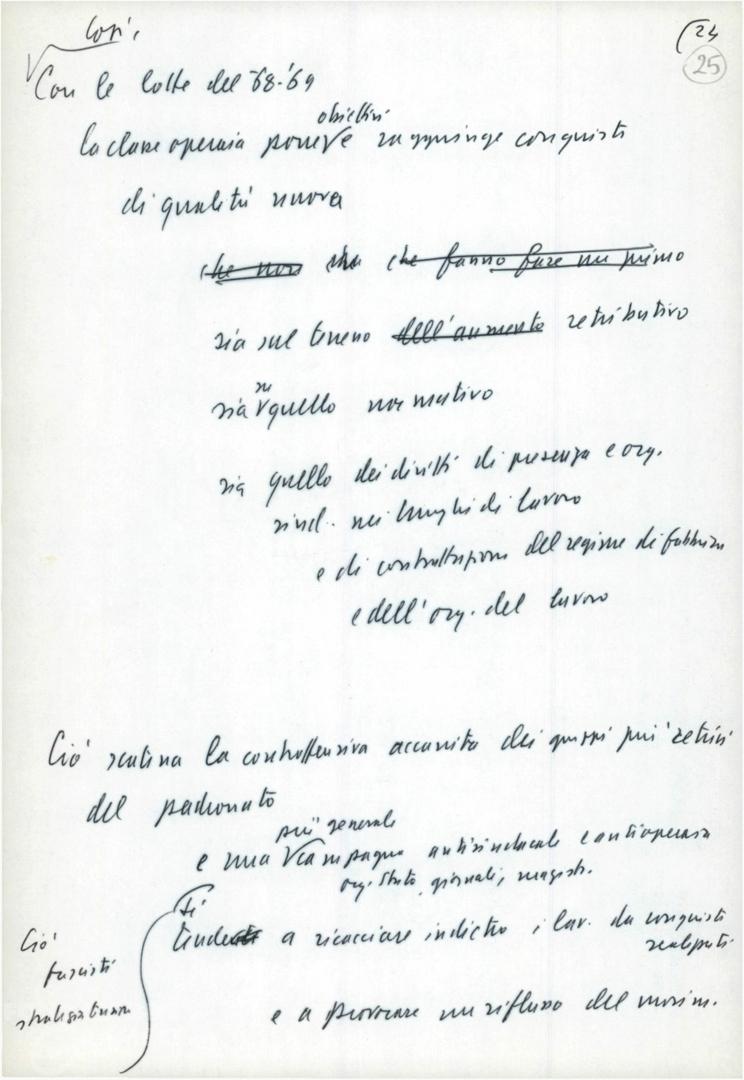 Così,
24
25
Con le lotte del '68-'69
obiettivi
la classe operaia pone e raggiunge conquiste
di qualità nuova
che non che che fanno fare un primo
sia sul terreno dell'aumento retributivo
su
sia quello normativo
sia quello dei diritti di presenza e org.
sind. nei luoghi di lavoro
e di contrattazione del regime di fabbrica
e dell'org. del lavoro
Ciò scatena la controffensiva accanita dei gruppi più retrivi
del padronato
più generale
e una campagna antisindacale e antioperaia
org. Stato, giornali, magistr.
Si
tende a ricacciare indietro i lav. da conquiste
realizzate
Ciò
fascisti
strategia tensione
e a provocare un riflusso del movim.